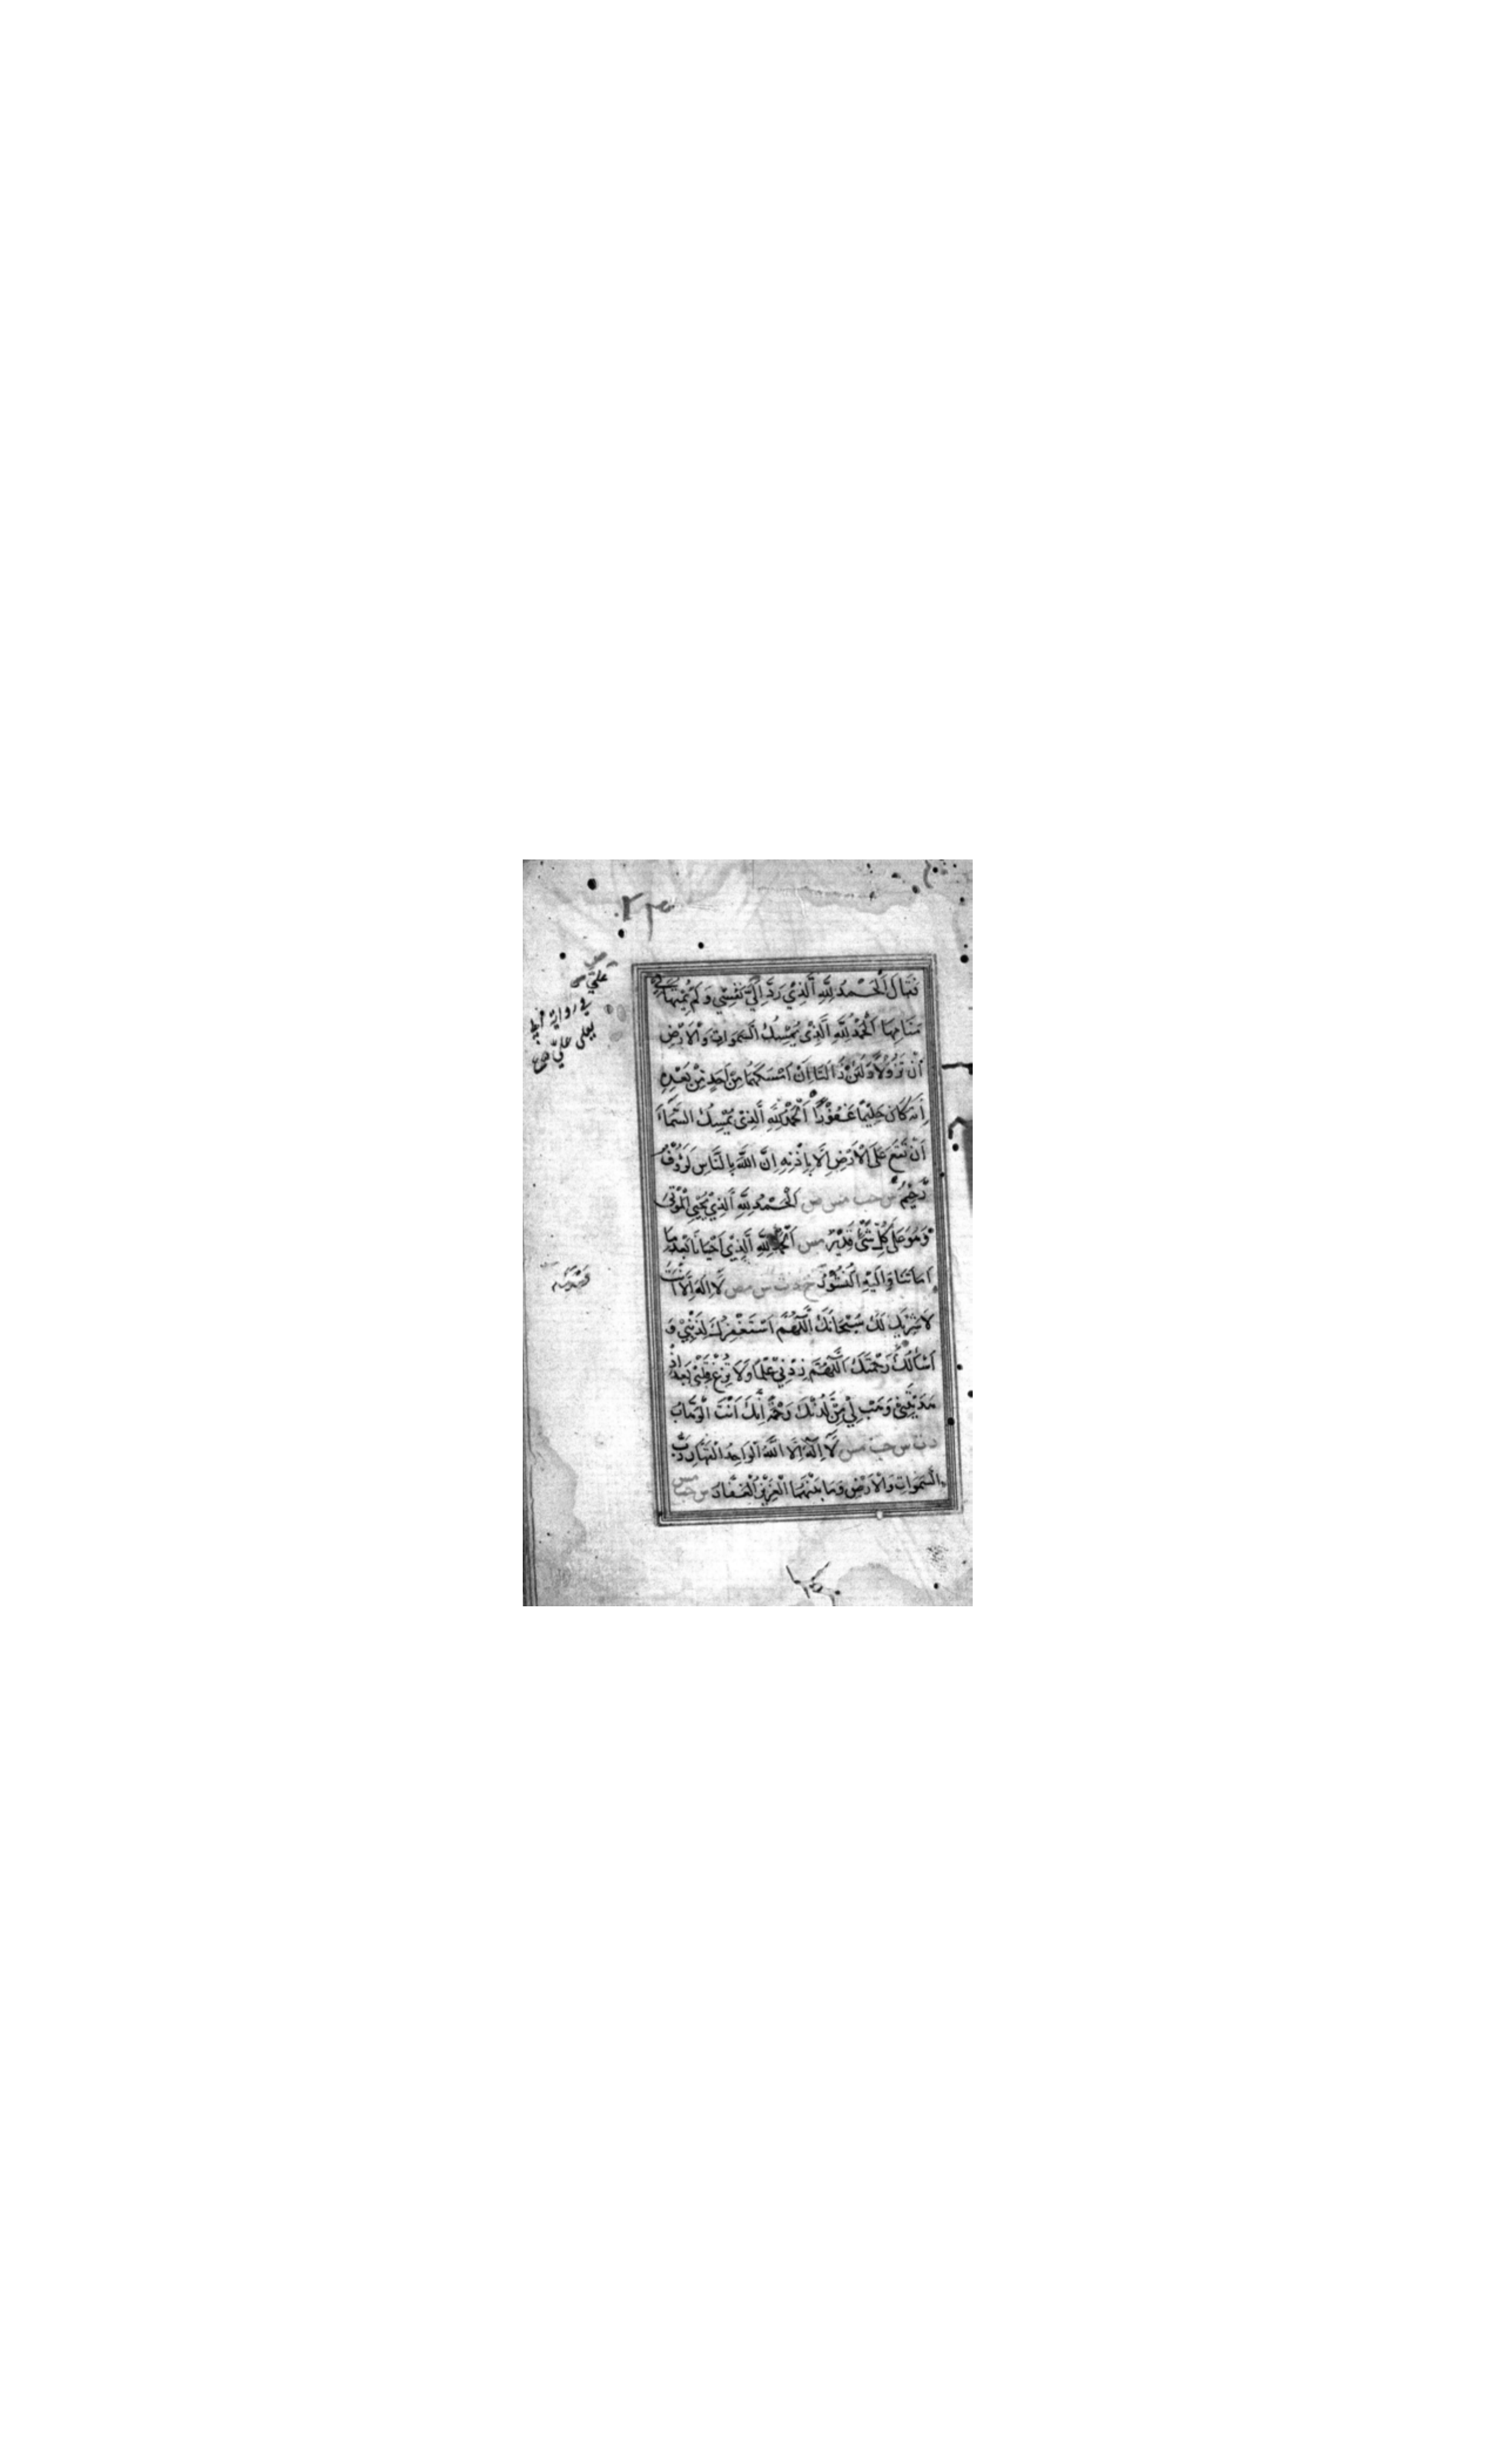 فَقَالَ اَلْحَمْدُ لِلّٰهِ الَّذِيْ رَدَّ اِلَيَّ نَفْسِيْ وَلَمْ يُمِتْهَا فِيْ
مَنَامِهَا اَلْحَمْدُ لِلّٰهِ الَّذِيْ يُمْسِكُ السَّمٰوَاتِ وَالْاَرْضَ
اَنْ تَزُوْلَا وَلَئِنْ زَالَتَا اِنْ اَمْسَكَهُمَا مِنْ اَحَدٍ مِنْ بَعْدِهِ
اِنَّهُ كَانَ حَلِيْمًا غَفُوْرًا اَلْحَمْدُ لِلّٰهِ الَّذِيْ يُمْسِكُ السَّمَاءَ
اَنْ تَقَعَ عَلَى الْاَرْضِ اِلَّا بِاِذْنِهِ اِنَّ اللّٰهَ بِالنَّاسِ لَرَؤُفٌ
رَّحِيْمٌ س حب مس ص اَلْحَمْدُ لِلّٰهِ الَّذِيْ يُحْيِي الْمَوْتٰى
وَهُوَ عَلٰى كُلِّ شَيْءٍ قَدِيْرٌ مس اَلْحَمْدُ لِلّٰهِ الَّذِيْ اَحْيَانَا بَعْدَ مَا
اَمَاتَنَا وَاِلَيْهِ النُّشُوْرُ خ د ت س مص لَا اِلٰهَ اِلَّا اَنْتَ
لَا شَرِيْكَ لَكَ سُبْحَانَكَ اَللّٰهُمَّ اَسْتَغْفِرُكَ لِذَنْبِيْ وَ
اَسْأَلُكَ رَحْمَتَكَ اَللّٰهُمَّ زِدْنِيْ عِلْمًا وَلَا تُزِغْ قَلْبِيْ بَعْدَ اِذْ
هَدَيْتَنِيْ وَهَبْ لِيْ مِنْ لَدُنْكَ رَحْمَةً اِنَّكَ اَنْتَ الْوَهَّابُ
د ت س حب مس لَا اِلٰهَ اِلَّا اللّٰهُ الْوَاحِدُ الْقَهَّارُ رَبُّ
السَّمٰوَاتِ وَالْاَرْضِ وَمَا بَيْنَهُمَا الْعَزِيْزُ الْغَفَّارُ س حب مس
عليّ
في رواية ابي
يعلى عليّ